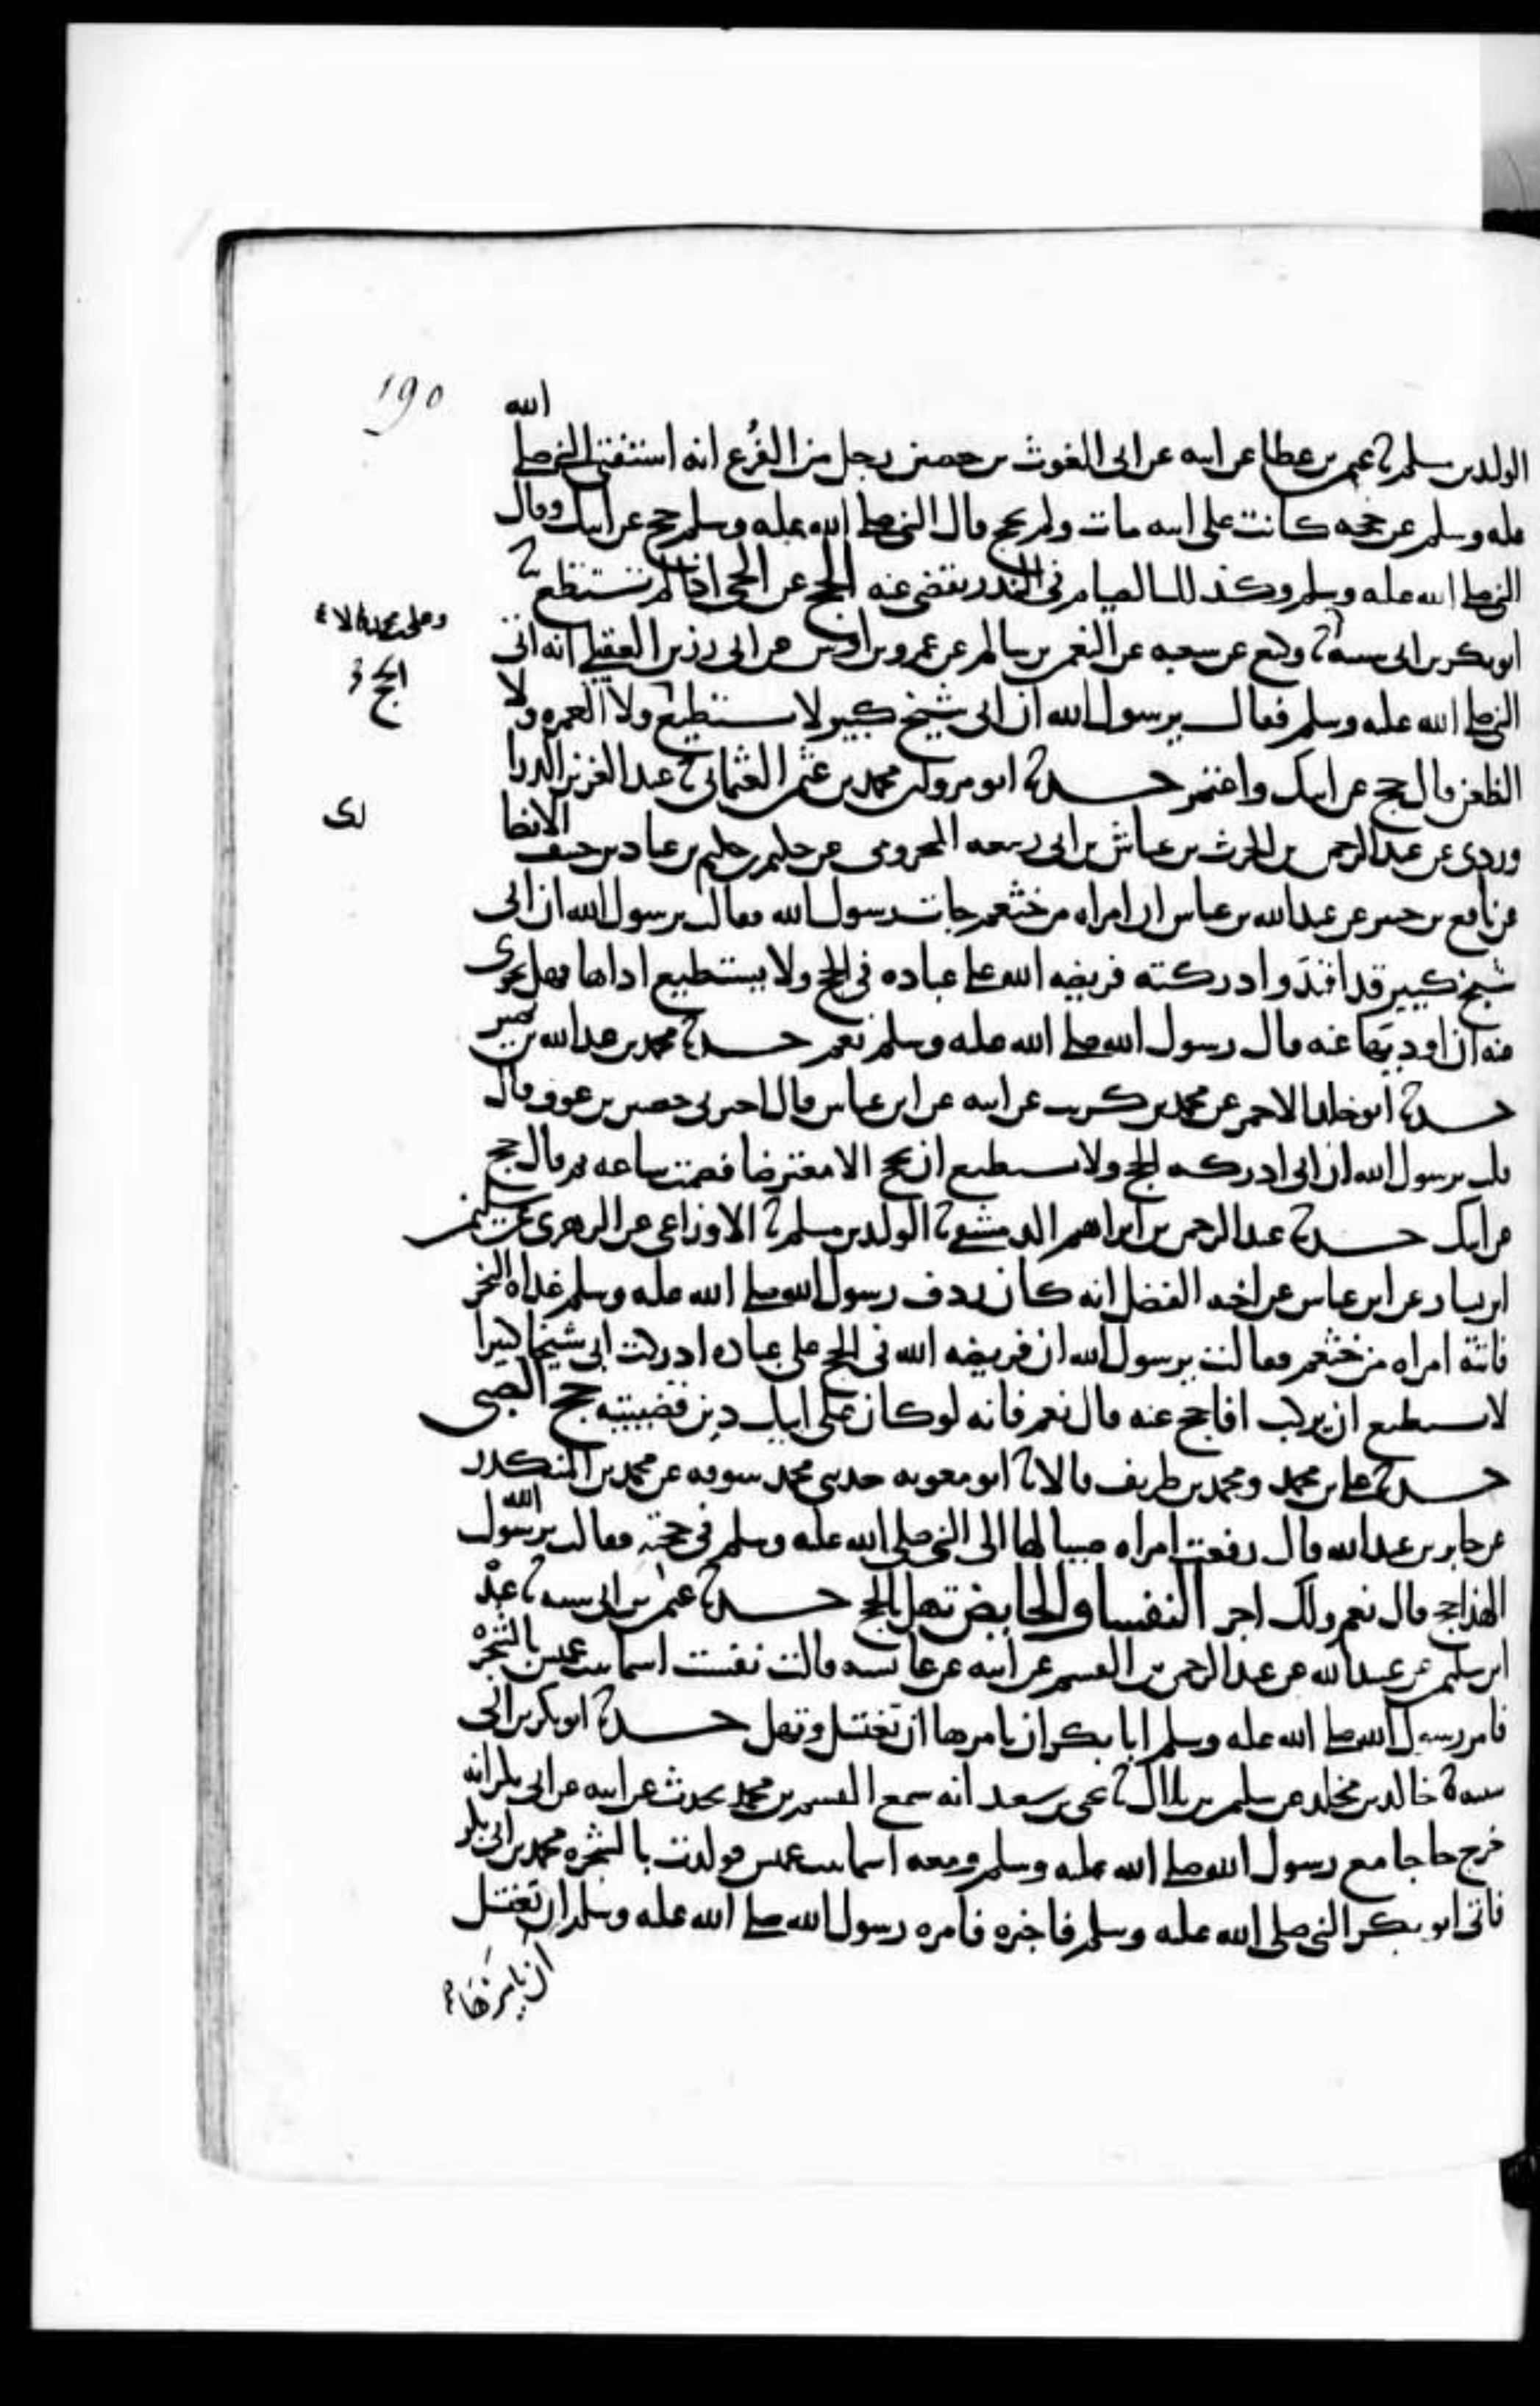 190
الله
الوليد بن مسلم ثنا عثمن بن عطا عن ابيه عن ابي الغوث بن حصين رجل من الفُرُع انه استفتى النبي صلى
عليه وسلم عن حجه كانت على ابيه مات ولم يحج قال النبي صلى الله عليه وسلم حج عن ابيك وقال
النبي صلى الله عليه وسلم وكذلك الصيام في النذر يقضى عنه الحج عن الحي اذا لم يستطع ثنا
ابو بكر بن ابي شيبة ثنا وكيع عن شعبه عن النعمن بن سالم عن عمرو بن اوس عن ابي رزين العقيلي انه اتى
وعلي بن محمد قالا
النبي صلى الله عليه وسلم فقال يرسول الله ان ابي شيخ كبير لا يستطيع ولا العمره ولا
الحج
الظعن قال حج عن ابيك واعتمر حدثنا ابو مروان محمد بن عثمن العثماني ثنا عبد العزيز الدرا
وردي عن عبد الرحمن بن الحرث بن عياش بن ابي ربيعه المخزومي عن حكيم بن حكيم بن عباد بن حنيف الانصا
ري
عن نافع بن جبير عن عبد الله بن عباس ان امراه من خثعم جات رسول الله فقالت يرسول الله ان ابي
شيخ كبير قد افند وادركته فريضه الله على عباده في الحج ولا يستطيع اداها فهل يجزى
عنه ان اوديها عنه قال رسول الله صلى الله عليه وسلم نعم حدثنا محمد بن عبد الله بن نمير
حدثنا ابو خالد الاحمر عن محمد بن كريب عن ابيه عن ابن عباس قال اخبرني حصين بن عوف قال
قلت يرسول الله ان ابي ادركه الحج ولا يستطيع ان يحج الا معترضا فصمت ساعه ثم قال حج
عن ابيك حدثنا عبد الرحمن بن ابراهيم الدمشقي ثنا الوليد بن مسلم ثنا الاوزاعي عن الزهري عن سليمن
ابن يسار عن ابن عباس عن اخيه الفضل انه كان ردف رسول الله صلى الله عليه وسلم غداه النحر
فاتته امراه من خثعم فقالت يرسول الله ان فريضه الله في الحج على عباده ادركت ابي شيخا كبيرا
لا يستطيع ان يركب افاحج عنه قال نعم فانه لو كان على ابيك دين قضيتيه حج الصبي
حدثنا علي بن محمد ومحمد بن طريف قالا ثنا ابو معويه حدثني محمد بن سوقه عن محمد بن المنكدر
عن جابر بن عبد الله قال رفعت امراه صبيا لها الى النبي صلى الله عليه وسلم في حجته فقالت يرسول الله
الهذا حج قال نعم ولك اجر النفسا والحايض تهل بالحج حدثنا عثمن بن ابي شيبه ثنا عبدة
ابن سليمن عن عبيد الله عن عبد الرحمن بن القسم عن ابيه عن عائشه قالت نفست اسما بنت عميس بالشجره
فامر رسول الله صلى الله عليه وسلم ابا بكر ان يامرها ان تغتسل وتهل حدثنا ابو بكر بن ابي
شيبه ثنا خالد بن مخلد عن سليمن بن بلال ثنا يحيى بن سعيد انه سمع القسم بن محمد يحدث عن ابيه عن ابي بكر انه
خرج حاجا مع رسول الله صلى الله عليه وسلم ومعه اسما بنت عميس فولدت بالشجره محمد بن ابي بكر
فاتى ابو بكر النبي صلى الله عليه وسلم فاخبره فامره رسول الله صلى الله عليه وسلم ان تغتسل
ان يامرها